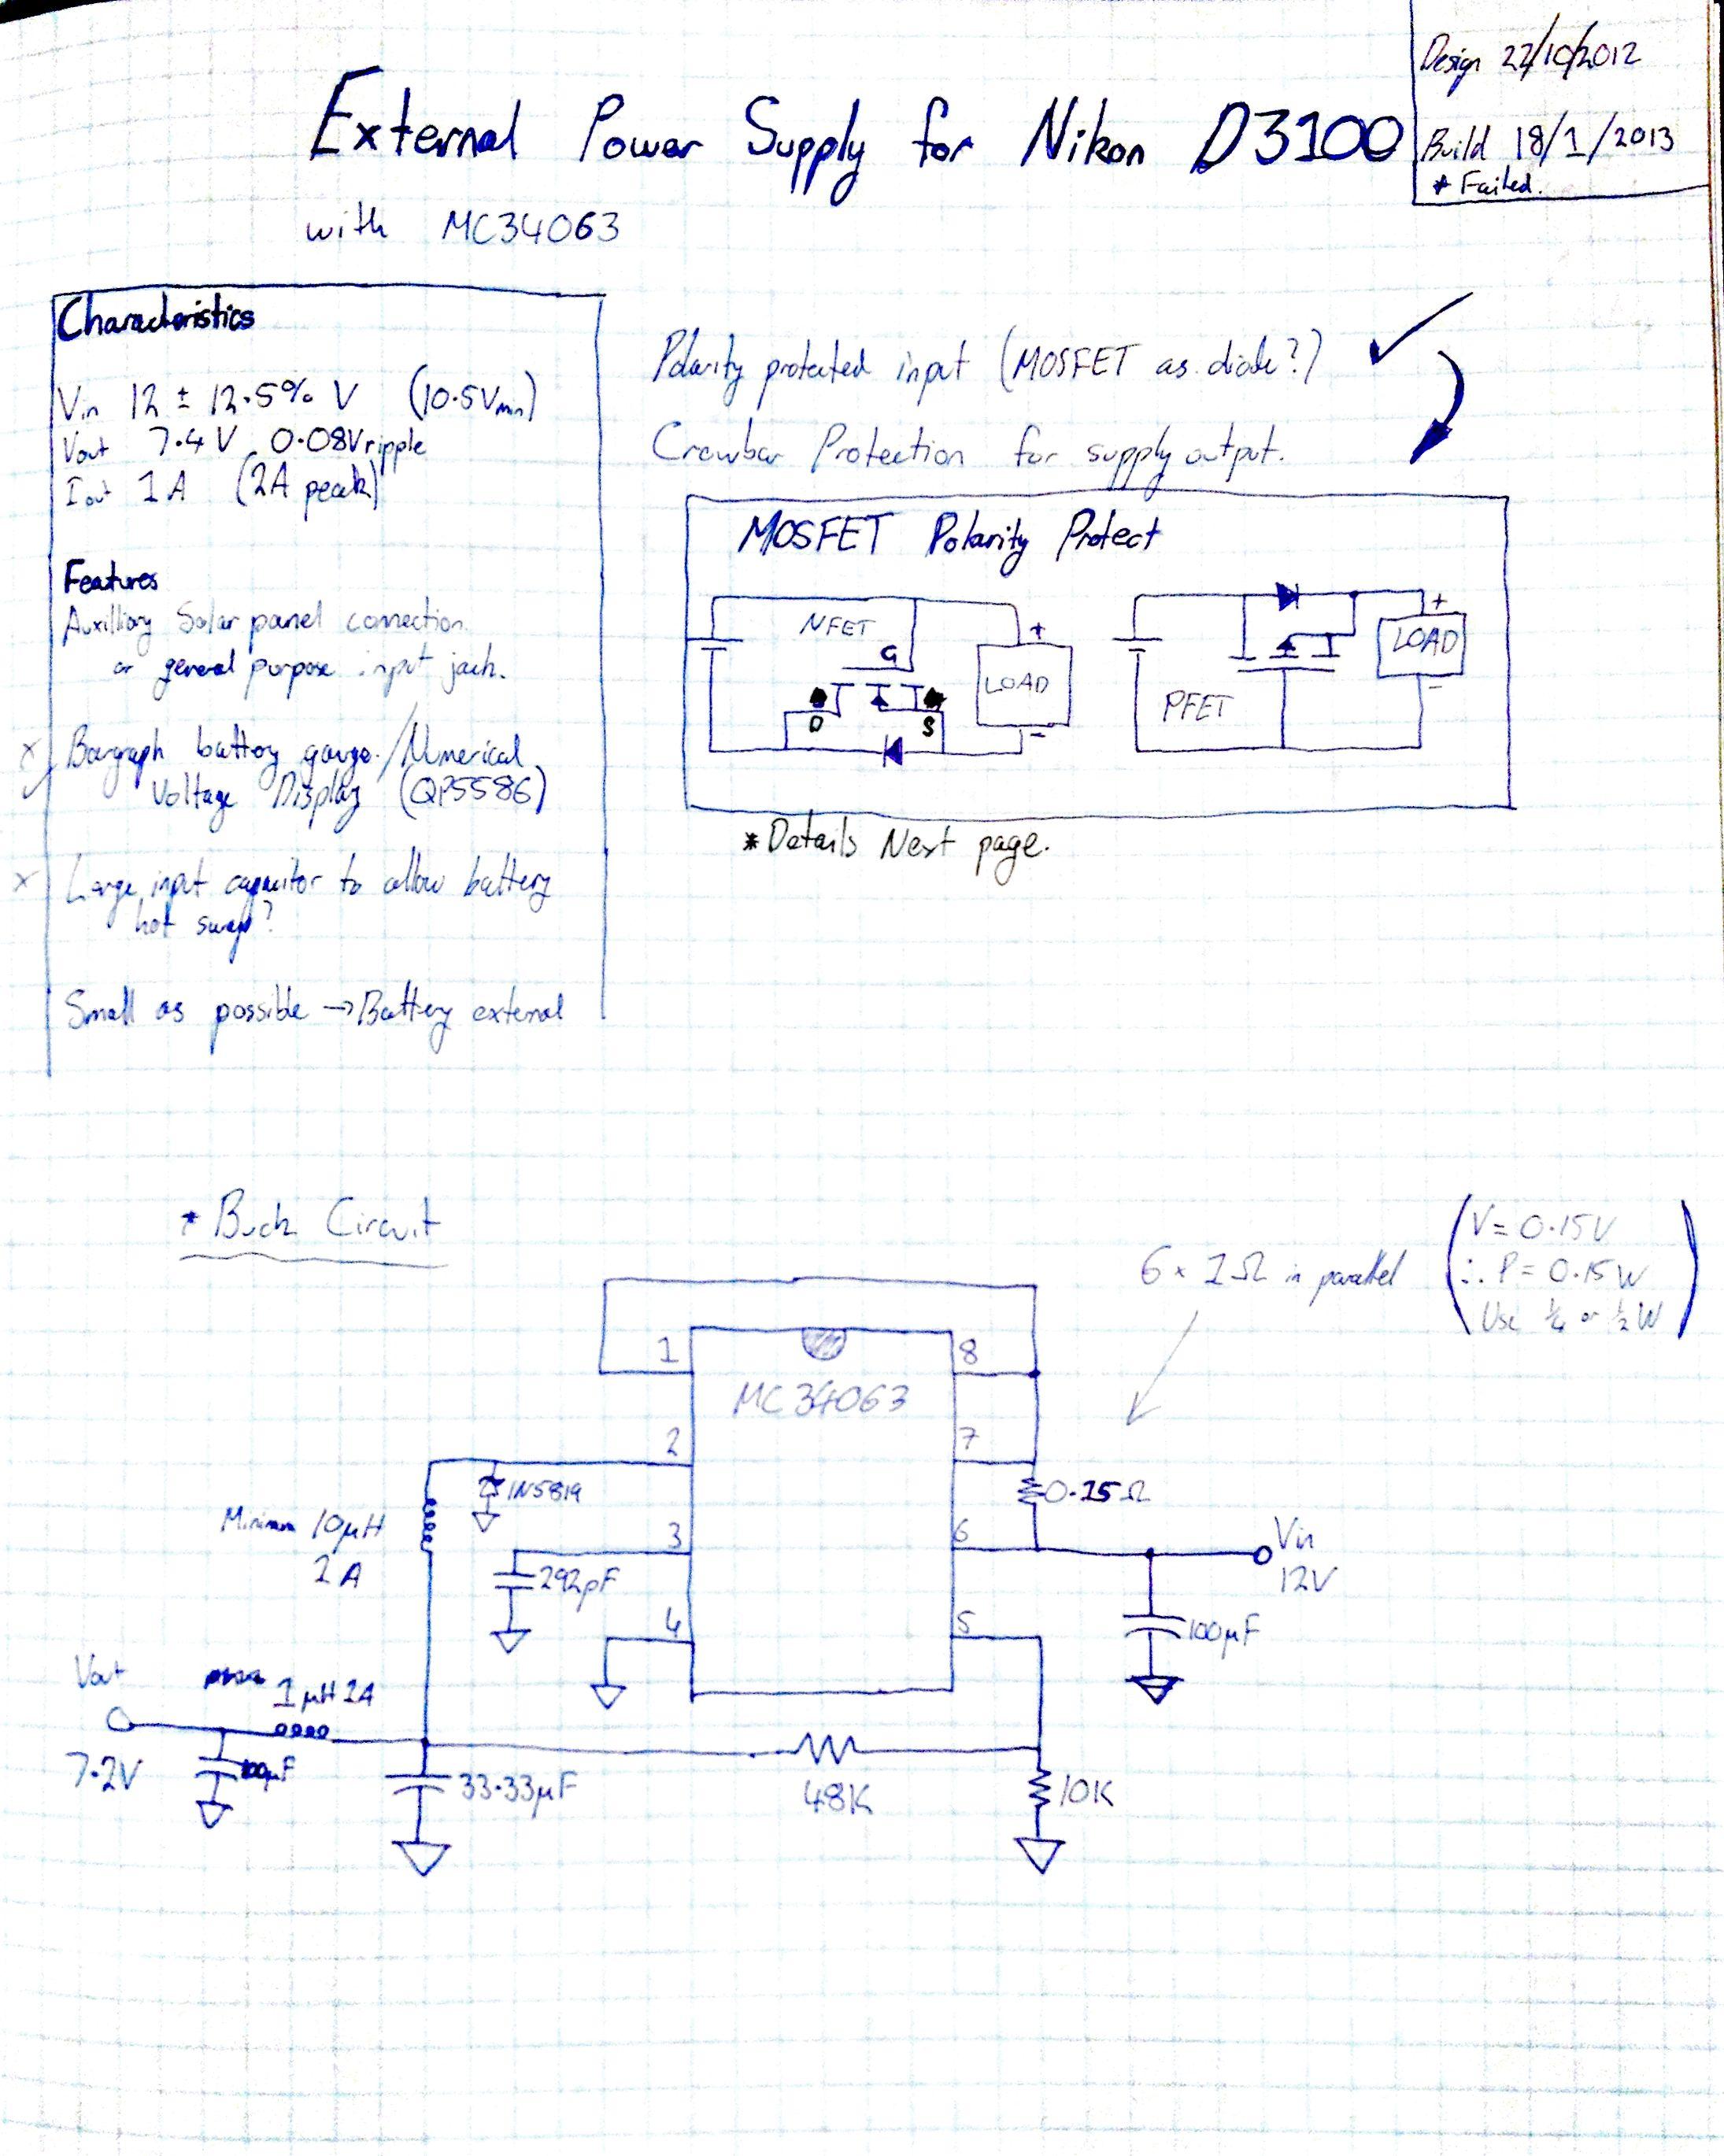 Design 22/10/2012
Build 18/1/2013
* Failed.
External Power Supply for Nikon D3100
with MC34063
Characteristics
Vin 12 ± 12.5% V (10.5Vmin)
Vout 7.4V 0.08Vripple
Iout 1A (2A peak)
Features
Auxilliary Solar panel connection
or general purpose input jack.
x Bargraph battery gauge./Numerical
Voltage Display (QP5586)
x Large input capacitor to allow battery
hot swap?
Small as possible → Battery external
Polarity protected input (MOSFET as diode?) ✓
Crowbar Protection for supply output.
MOSFET Polarity Protect
NFET
G
D
S
+
LOAD
-
PFET
+
LOAD
-
* Details Next page.
* Buck Circuit
6 × 1Ω in parallel
(V = 0.15V
∴ P = 0.15W
Use ¼ or ½W)
MC34063
1
2
3
4
8
7
6
5
1N5819
Minimum 10µH
2A
292pF
0.15Ω
Vin
12V
100µF
Vout
7.2V
1µH 2A
100µF
33.33µF
48K
10K